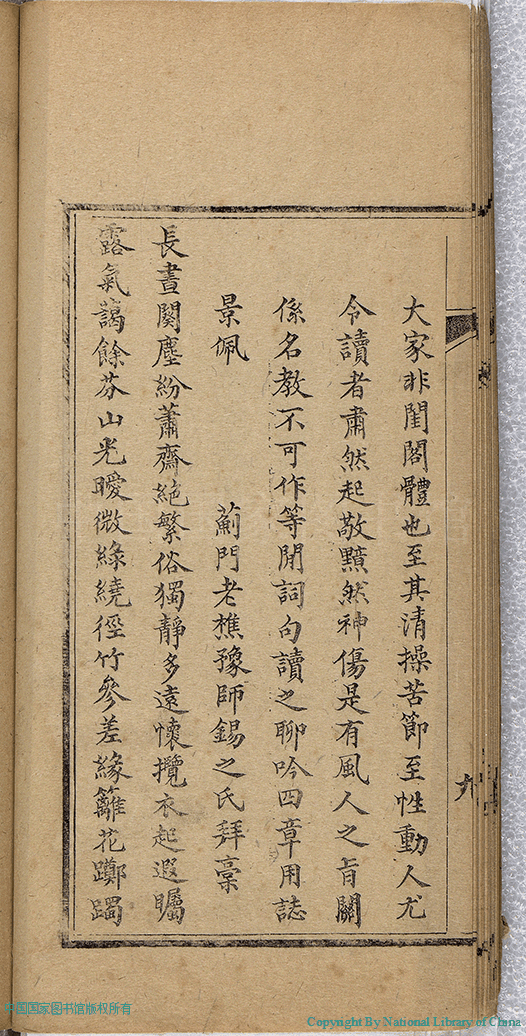 大家非閨閣體也至其清操苦節至性動人尤
令讀者肅然起敬黯然神傷是有風人之旨關
係名教不可作等閒詞句讀之聊吟四章用誌
景佩
薊門老樵豫師錫之氏拜稾
長晝闃塵紛蕭齋絶繁俗獨靜多遠懷攬衣起遐矚
露氣藹餘芬山光曖微綠繞徑竹參差緣籬花躑躅
九
中国国家图书馆版权所有
Copyright By National Library of China